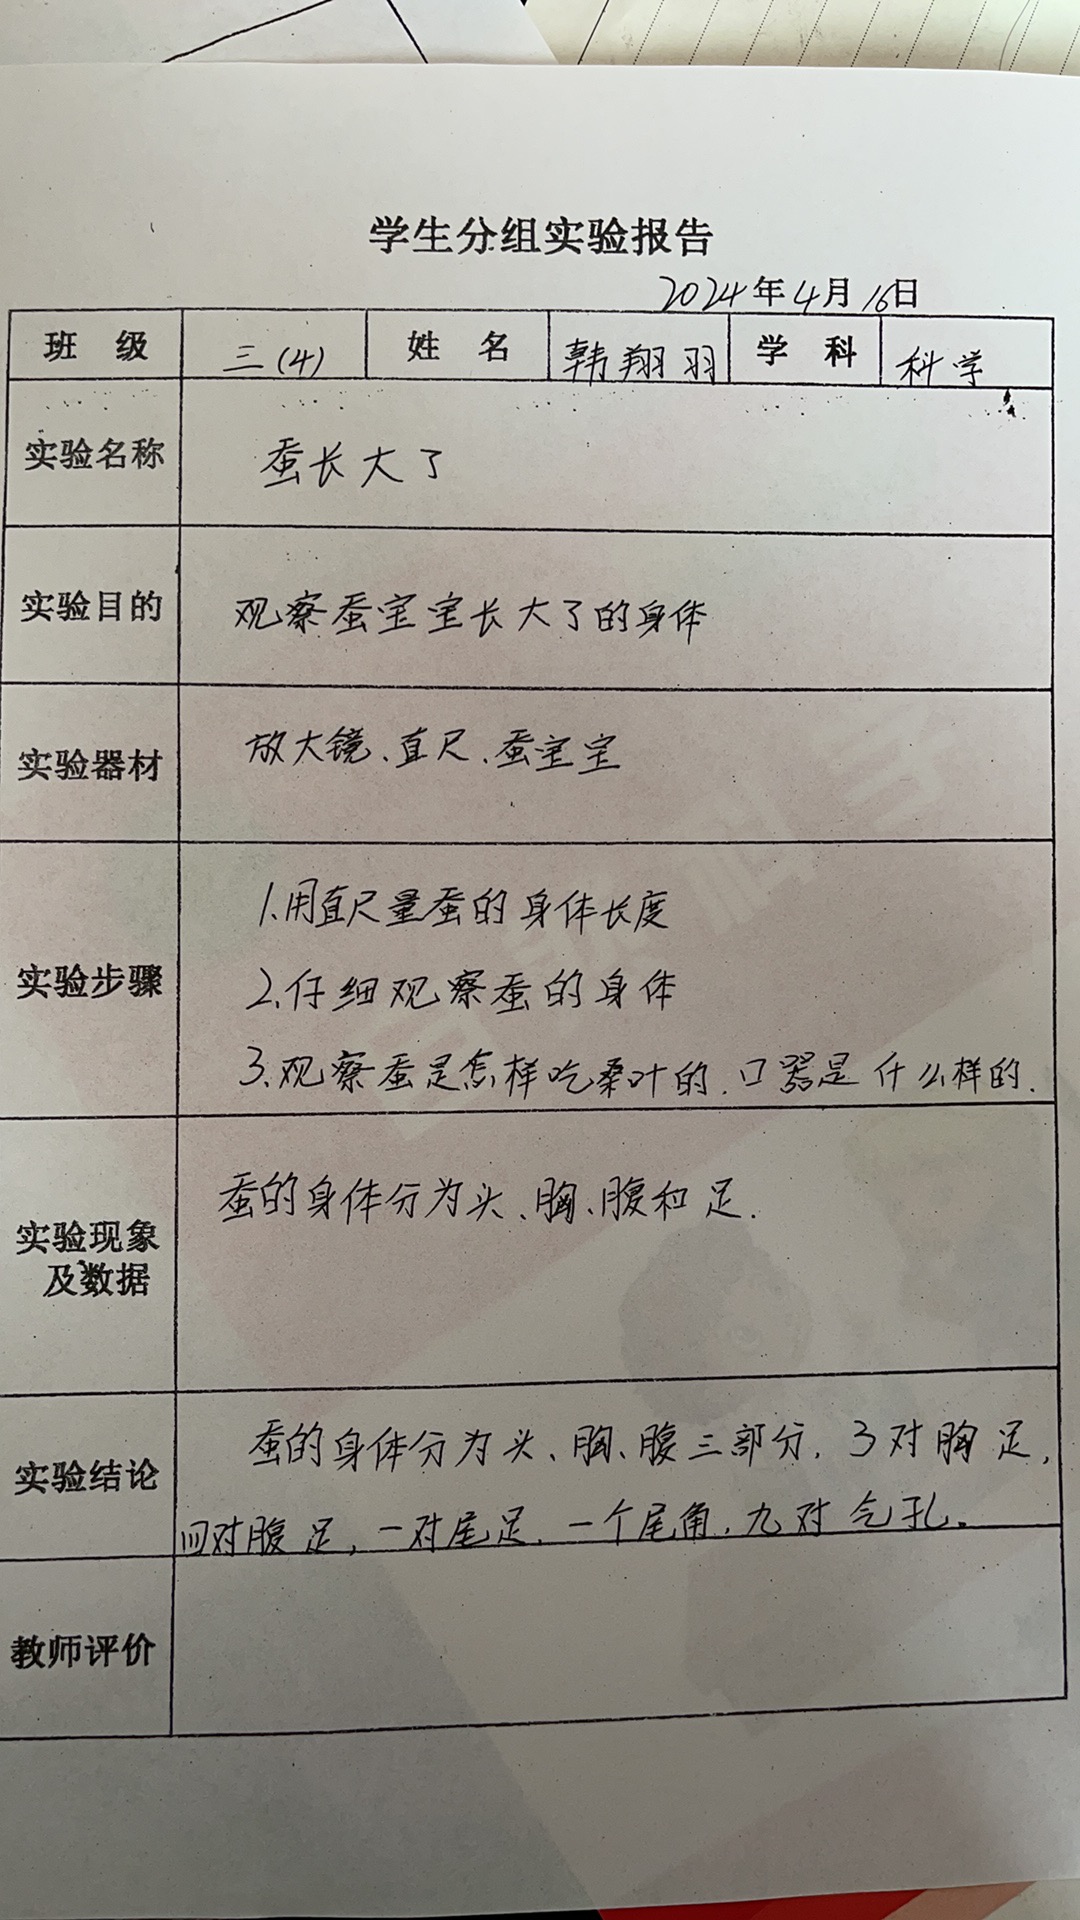 学生分组实验报告
2024年4月16日
班 级 三(4) 姓 名 韩翔羽 学 科 科学
实验名称 蚕长大了
实验目的 观察蚕宝宝长大了的身体
实验器材 放大镜、直尺、蚕宝宝
1.用直尺量蚕的身体长度
实验步骤 2.仔细观察蚕的身体
3.观察蚕是怎样吃桑叶的.口器是什么样的.
蚕的身体分为头、胸、腹和足.
实验现象
及数据
蚕的身体分为头、胸、腹三部分,3对胸足,
实验结论
四对腹足,一对尾足,一个尾角,九对气孔。
教师评价